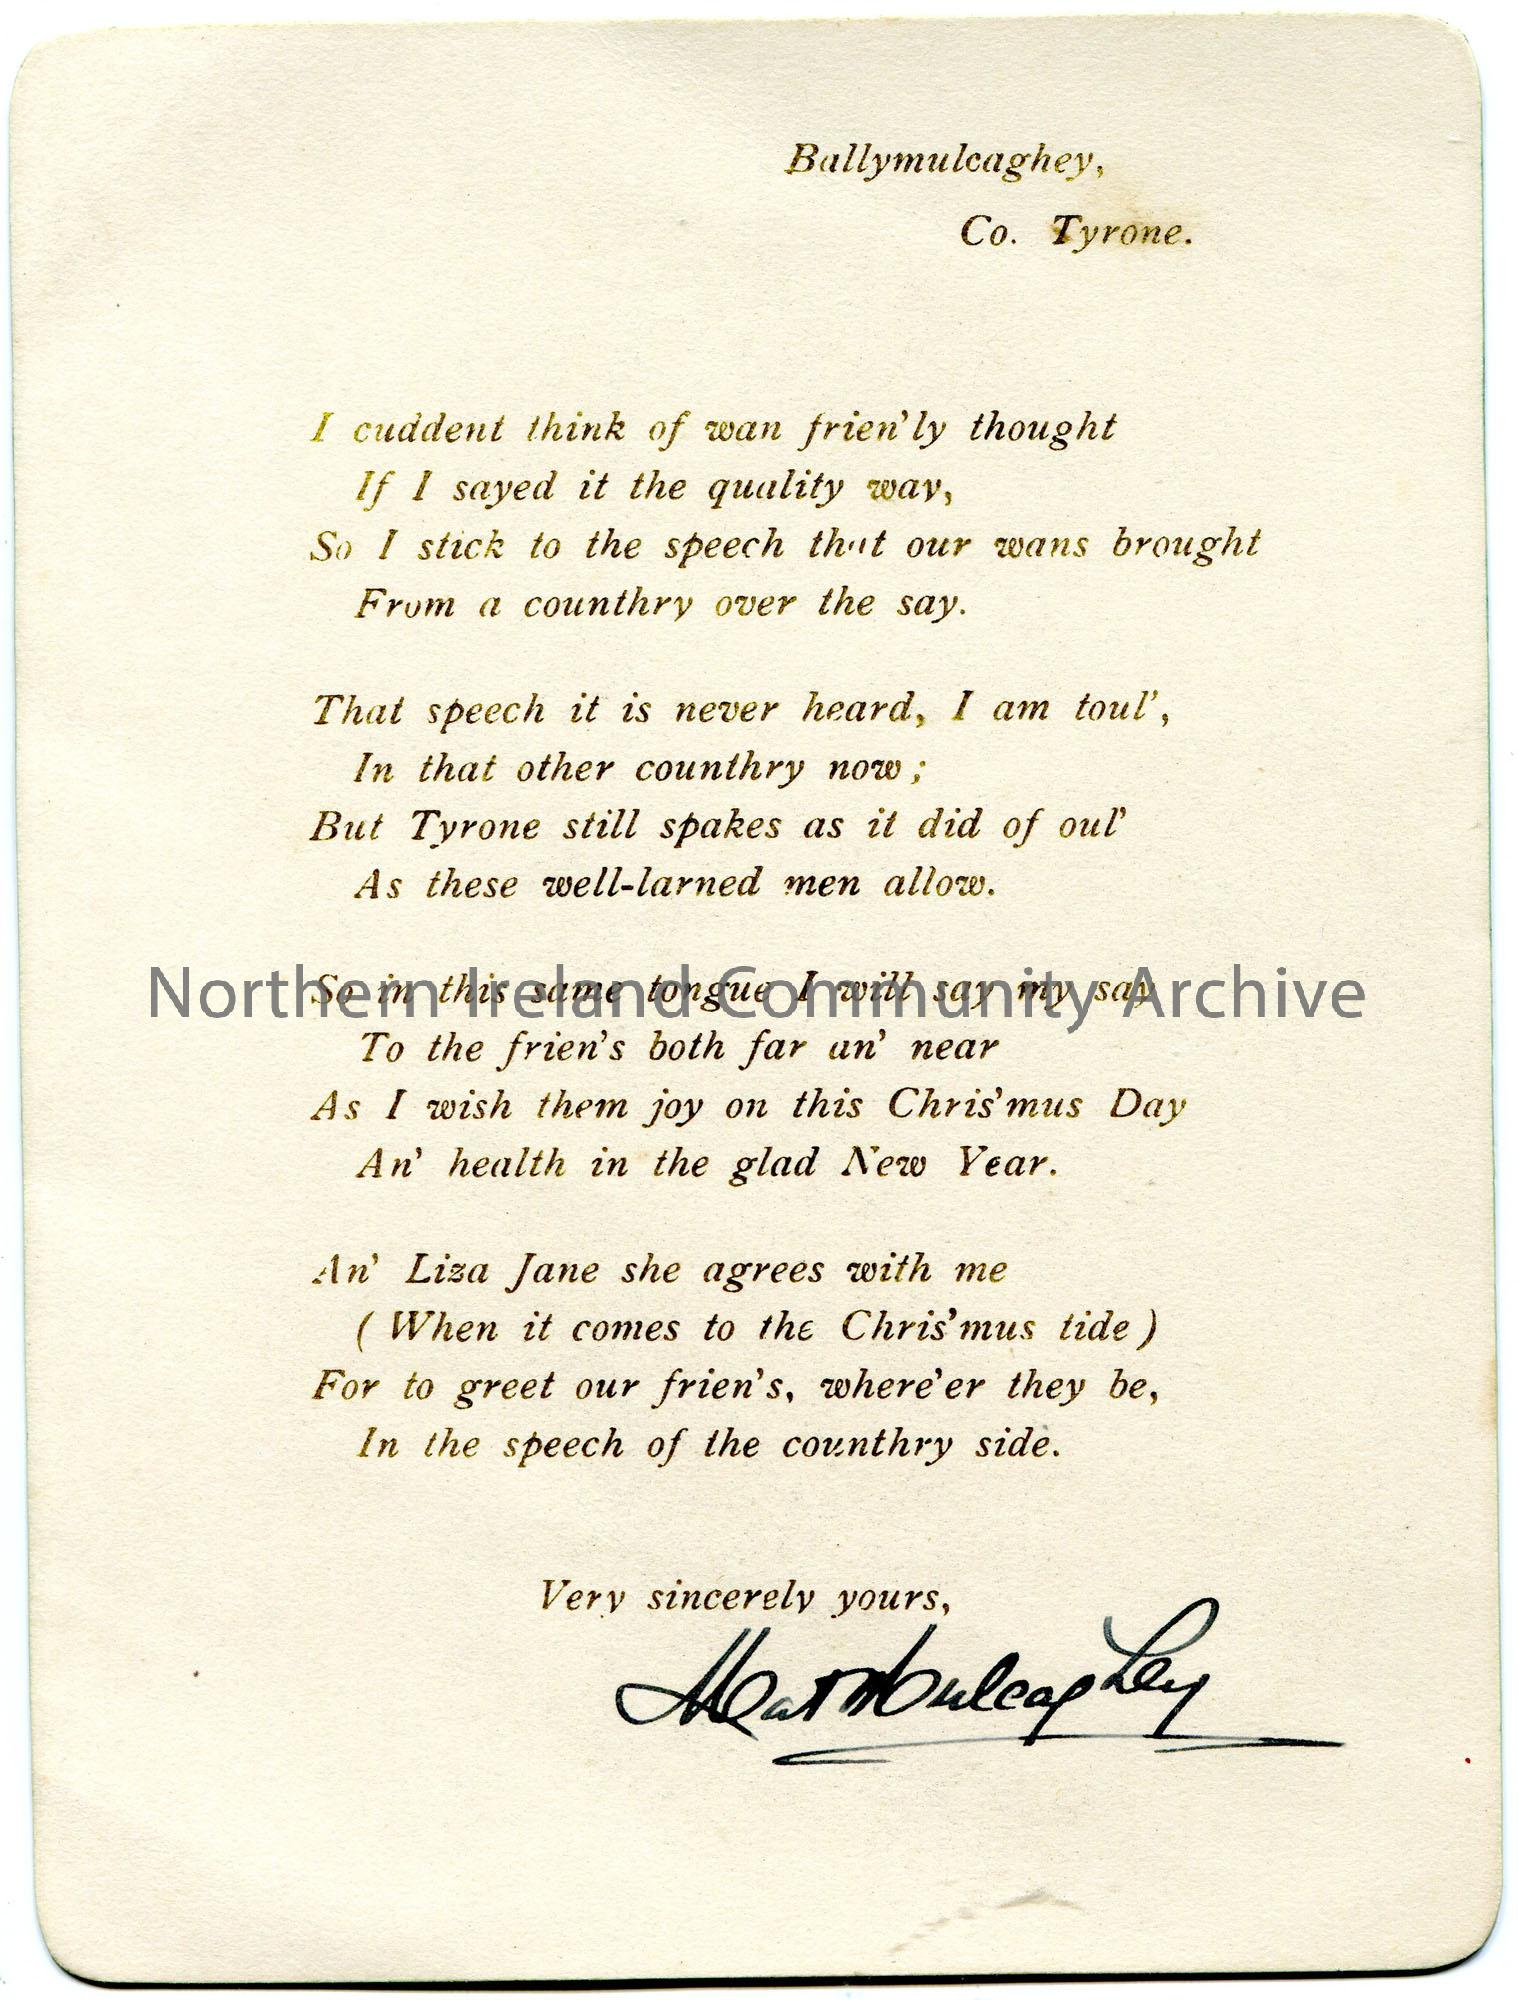 Ballymulcaghey,
Co. Tyrone.
I cuddent think of wan frien'ly thought
If I sayed it the quality way,
So I stick to the speech that our wans brought
From a counthry over the say.
That speech it is never heard, I am toul',
In that other counthry now ;
But Tyrone still spakes as it did of oul'
As these well-larned men allow.
So in this same tongue I will say my say
Northern Ireland Community Archive
To the frien's both far an' near
As I wish them joy on this Chris'mus Day
An' health in the glad New Year.
An' Liza Jane she agrees with me
( When it comes to the Chris'mus tide )
For to greet our frien's, where'er they be,
In the speech of the counthry side.
Very sincerely yours,
Mat Mulcaghey